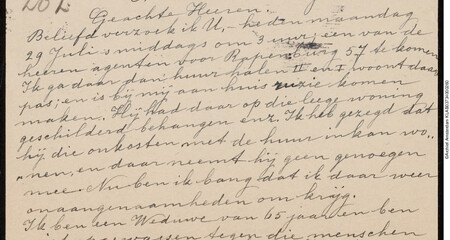 Geachte Heeren.
Beleefd verzoek ik U, heden maandag
29 Juli s middags om 3 uur, een van de
heeren agenten voor Rapenburg 57 te komen
Ik ga daar dan huur halen II en I woont daar
pas, en is bij mij aan huis ruzie komen
maken. Hij had daar op die leege woning
geschilderd behangen enz. Ik heb gezegd dat
hij die onkosten met de huur in kan wo..
nen, en daar neemt hij geen genoegen
mee. Nu ben ik bang dat ik daar weer
onaangenaamheden om krijg.
Ik ben een Weduwe van 65 jaar en ben
tegen die menschen